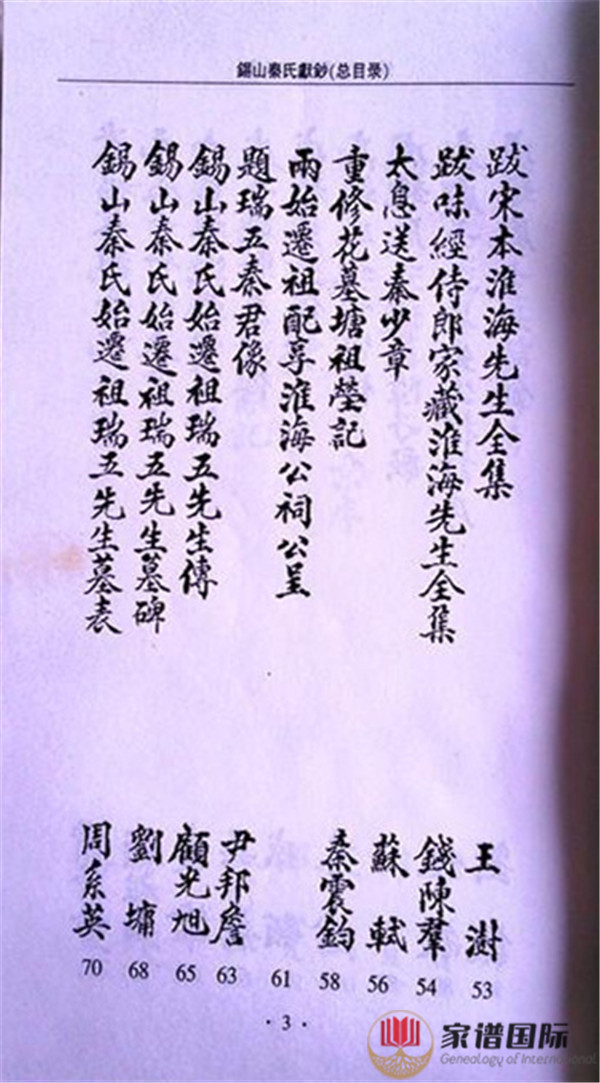 錫山秦氏獻鈔(总目录)
跋宋本淮海先生全集 王澍 53
跋味經侍郎家藏淮海先生全集 錢陳羣 54
太息送秦少章 蘇軾 56
重修花墓塘祖塋記 秦震鈞 58
兩始遷祖配享淮海公祠公呈 61
題瑞五秦君像 尹邦詹 63
錫山秦氏始遷祖瑞五先生傳 顧光旭 65
錫山秦氏始遷祖瑞五先生墓碑 劉墉 68
錫山秦氏始遷祖瑞五先生墓表 周系英 70
·3·
家谱国际
Genealogy of International